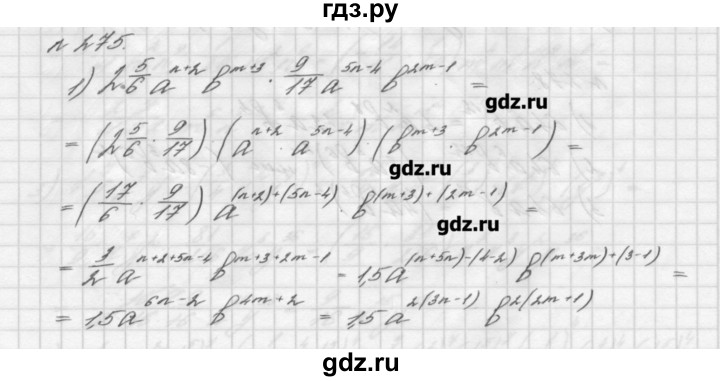 гдз.ру
n 275.
1) 2 5/6 a^(n+2) b^(m+3) · 9/17 a^(5n-4) b^(2m-1) =
gdz.ru
= (2 5/6 · 9/17) (a^(n+2) · a^(5n-4)) · (b^(m+3) · b^(2m-1)) =
gdz.ru
= (17/6 · 9/17) a^((n+2)+(5n-4)) · b^((m+3)+(2m-1)) =
gdz.ru
= 3/2 a^(n+2+5n-4) b^(m+3+2m-1) = 1,5a^((n+5n)-(4-2)) b^((m+3m)+(3-1)) =
= 1,5a^(6n-2) b^(4m+2) = 1,5a^(2(3n-1)) b^(2(2m+1))
gdz.ru